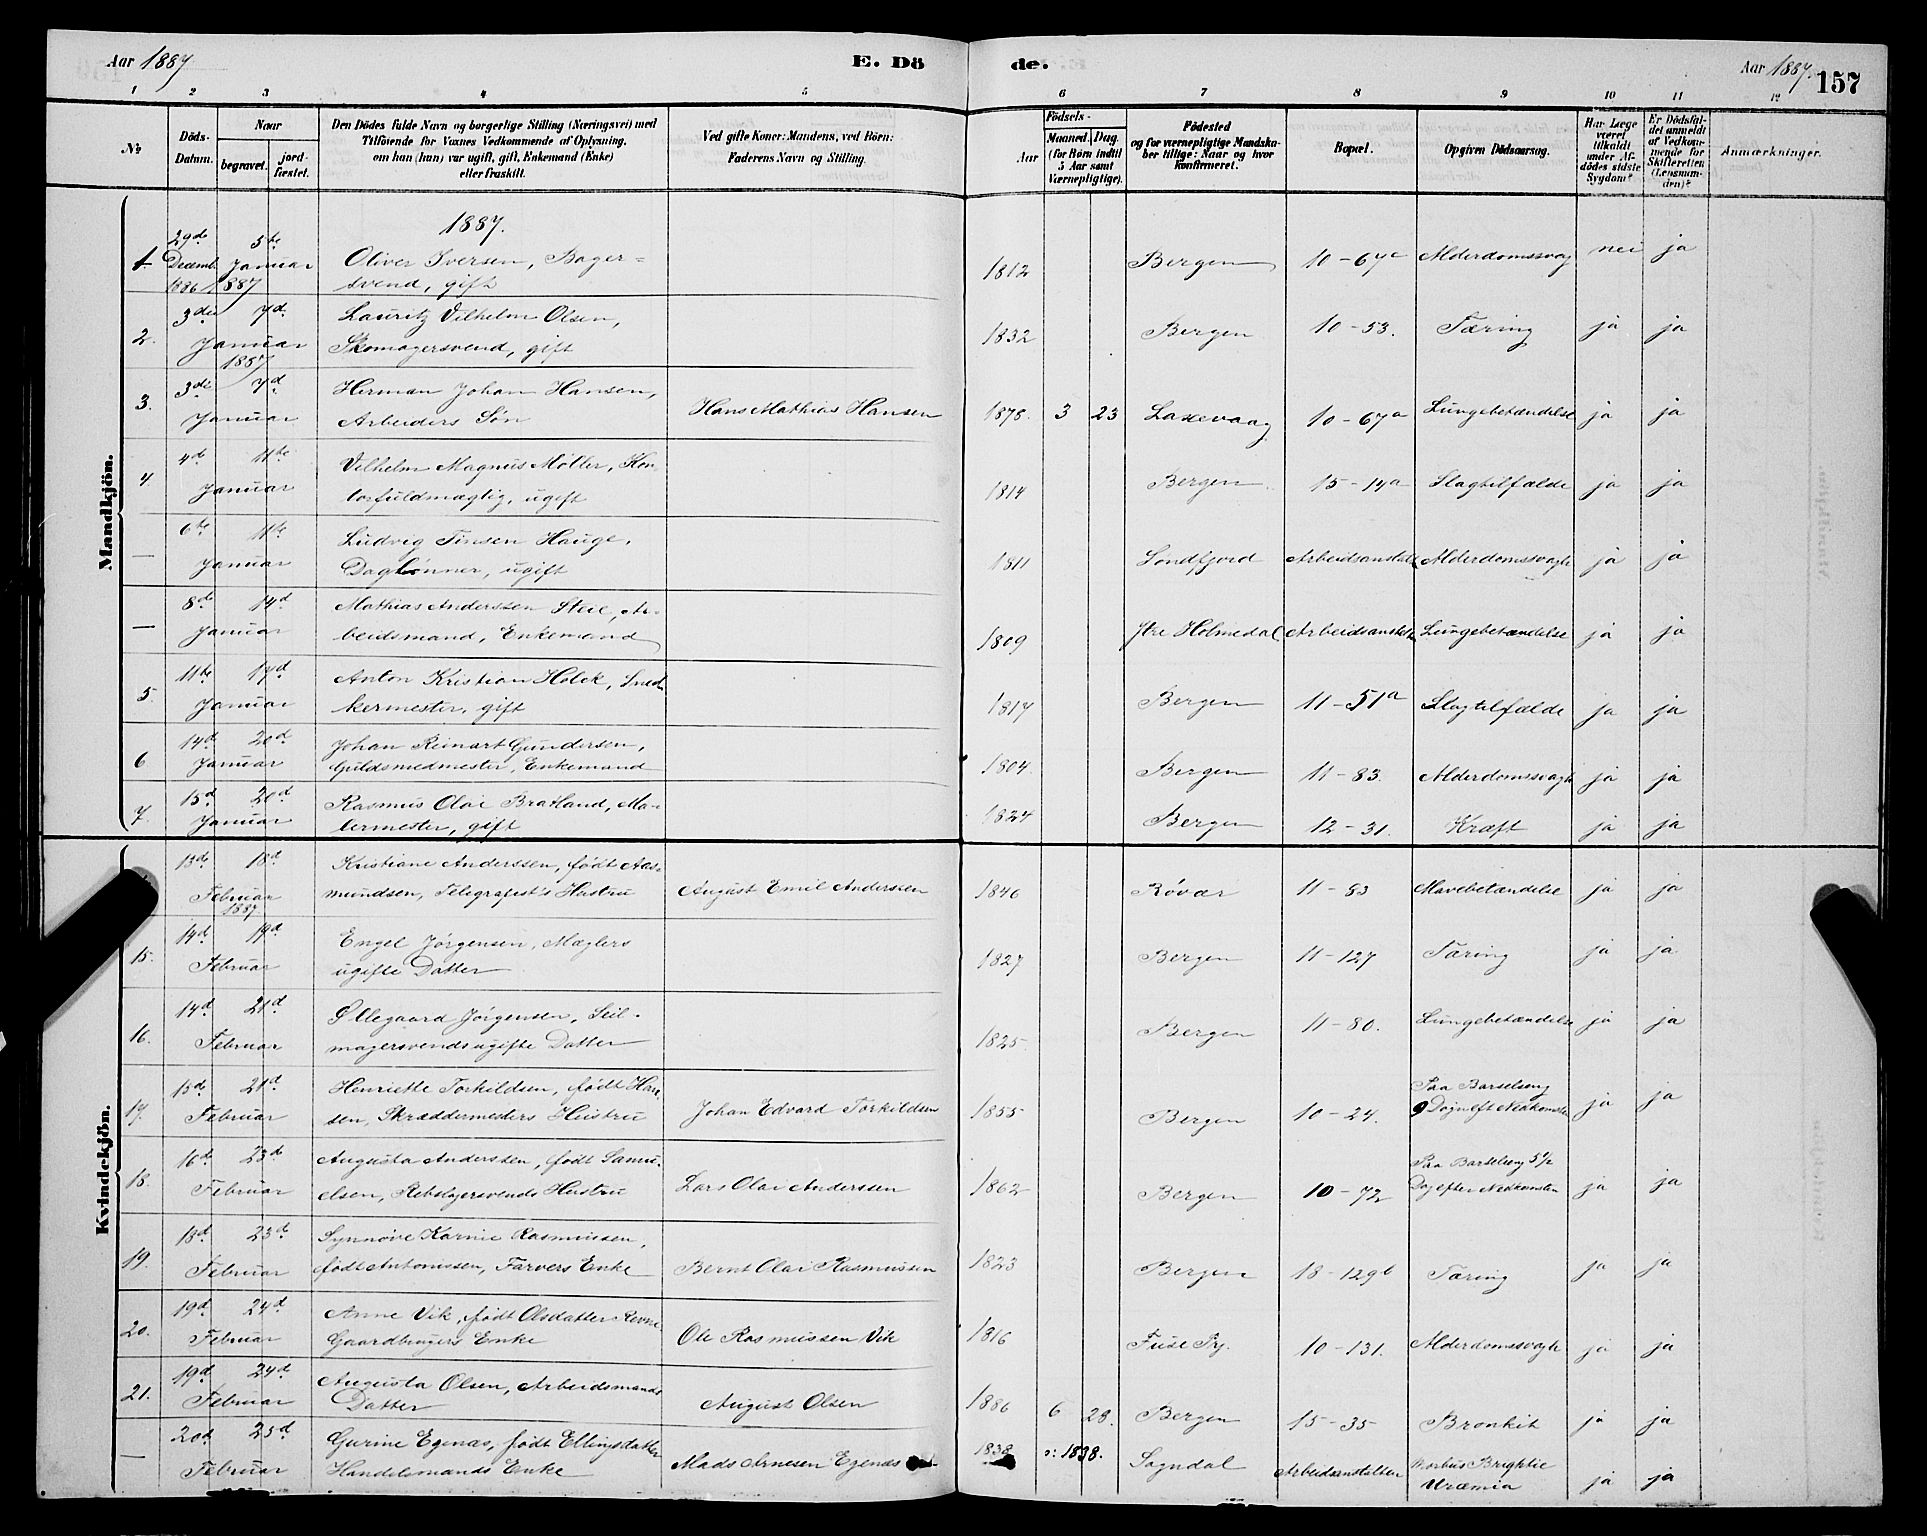 Aar 1887
E. Dö
de.
Aar 1887.
157
1 2 3 4 5 6 7 8 9 10 11 12
№
Döds-
Datum.
Naar
begravet.
jord-
fæstet.
Den Dödes fulde Navn og borgerlige Stilling (Næringsvei) med
Tilföiende for Voxnes Vedkommende af Oplysning.
om han (hun) var ugift, gift, Enkemand (Enke)
eller fraskilt.
Ved gifte Koner: Mandens, ved Börn:
Faderens Navn og Stilling.
Aar
Födsels-
Maaned. Dag.
(for Börn indtil
5 Aar samt
Værnepligtige).
Födested
og for værnepligtige Mandska-
ber tillige: Naar og hvor
konfirmeret.
Bopæl.
Opgiven Dödsaarsag.
Har Læge
været
tilkaldt
under Af-
dödes sidste
Sygdom?
Er Dödsfal-
det anmeldt
af Vedkom-
mende for
Skifteretten
(Lensman-
den)?
Anmærkninger.
Mandkjön.
1887.
1. 29de 5te Oliver Iversen, Bager-
Decemb. Januar svend, gift 1812 Bergen 10-67a Alderdomssvag nei ja
1886 1887
2. 3die 7d. Lauritz Vilhelm Olsen,
Januar Skomagersvend, gift 1832 Bergen 10-53. Tæring ja ja
1887
3. 3die 7d Herman Johan Hansen,
Januar Arbeiders Søn Hans Mathias Hansen 1878. 3 23 Laxevaag 10-67a Lungebetændelse ja ja
4. 4d 11te Vilhelm Magnus Møller, Kon-
Januar torfuldmægtig, ugift 1814 Bergen. 15-14a Slagtilfælde ja ja
— 6te 11te Ludvig Tinsen Hauge,
Januar Daglønner, ugift 1811 Søndfjord Arbeidsanstalt Alderdomssvagh ja ja
— 8de 14d Mathias Anderssen Steie, Ar-
Januar beidsmand, Enkemand 1809 Ytre Holmedal Arbeidsanstalt Lungebetændelse ja ja
5. 11te 17d Anton Kristian Holck, Sned-
Januar kermester, gift 1817 Bergen 11-51a Slagtilfælde ja ja
6 14d 20d Johan Reinart Gundersen,
Januar Guldsmedmester, Enkemand 1804 Bergen 11-83. Alderdomssvagh ja ja
7. 15d 20d Rasmus Olai Bratland, Ma-
Januar lermester, gift 1824 Bergen 12-31. Kræft ja ja
Kvindekjön.
13de 18d Kristiane Anderssen, født Aas-
Februar mundsen, Telegrafist's Hustru August Emil Anderssen 1846 Røvær 11-83 Mavebetændelse ja ja
1887
15. 14d 19d Engel Jørgensen, Mæglers
Februar ugifte Datter 1827 Bergen 11-127 Tæring ja ja
16. 14d 21d Øllegaard Jørgensen, Seil-
Februar magersvends ugifte Datter 1825 Bergen 11-80. Lungebetændelse ja ja
17. 15d 21d Henriette Torkildsen, født Han-
Februar sen, Skræddermesters Hustru Johan Edvard Torkildsen 1855 Bergen 10-24. Paa Barselseng
9 Døgn eft Nedkomsten ja ja
18. 16d 23d Augusta Anderssen, født Samu-
Februar elsen, Rebslagersvends Hustru Lars Olai Anderssen 1862 Bergen 10-72 Paa Barselseng 5 1/2
Dag efter Nedkomsten ja ja
19. 18d 23d Synnøve Karnie Rasmussen,
Februar født Antonissen, Farvers Enke Bernt Olai Rasmussen 1823 Bergen 18-129b Tæring ja ja
20. 19d 24d Anne Vik, født Olsdatter Revne
Februar Gaardbrugers Enke Ole Rasmussen Vik 1816 Fuse Prj. 10-131. Alderdomssvagh ja ja
21. 19d 24d Augusta Olsen, Arbeidsmands
Februar Datter August Olsen 1886 6 28. Bergen 15-35 Bronkit ja ja
— 20d 25d Gurine Egenæs, født Ellingsdatter
Februar Handelsmands Enke Mads Arnesen Egenæs 1838 ɔ: 1838. Sogndal Arbeidsanstalten Morbus Brightii
Uræmia ja ja